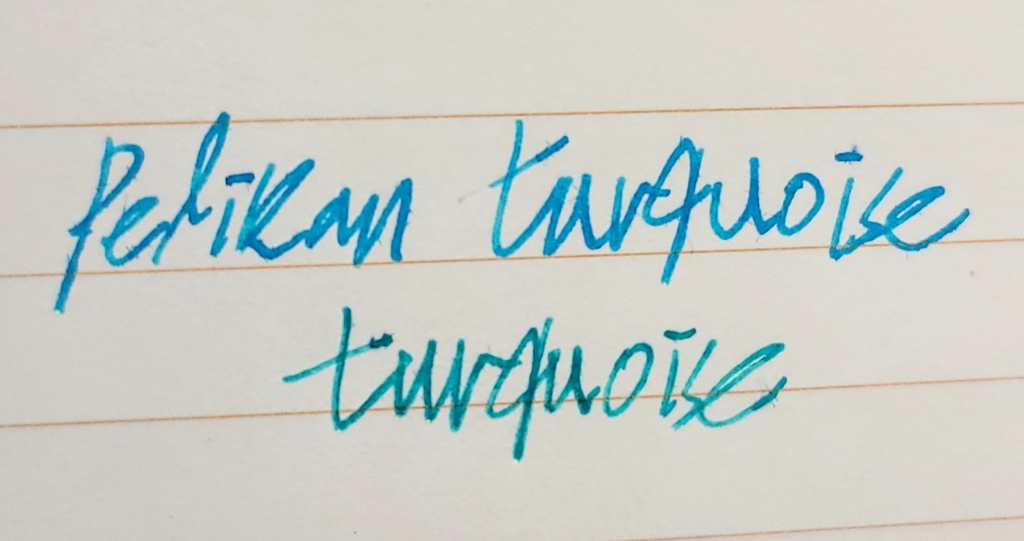 Pelikan turquoise
turquoise